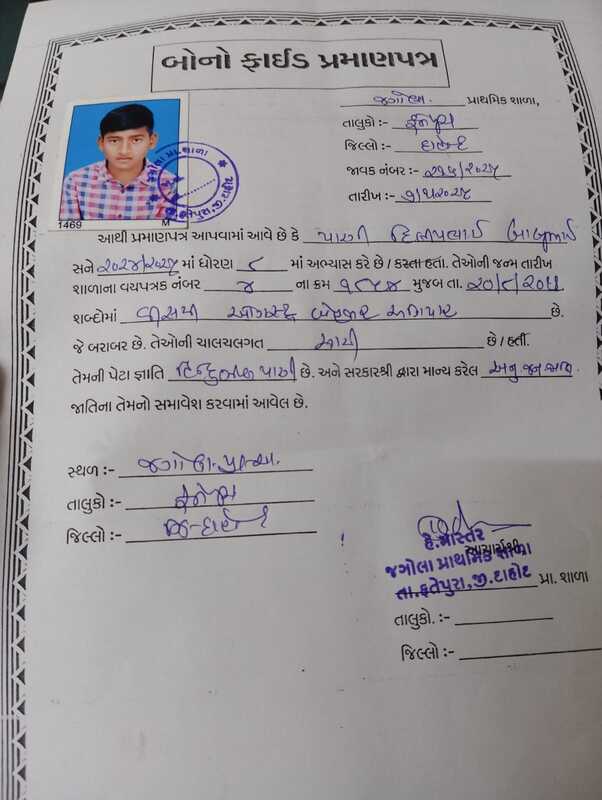 બોનો ફાઈડ પ્રમાણપત્ર
જગોલા પ્રાથમિક શાળા,
તાલુકો :- ફતેપુરા
જિલ્લો :- દાહોદ
જાવક નંબર :- ૨૫/૨૦૨૪
તારીખ :-
1469 M
આથી પ્રમાણપત્ર આપવામાં આવે છે કે પારગી દિલીપભાઈ બાબુભાઈ
સને ૨૦૨૪/૨૦૨૫ માં ધોરણ ૮ માં અભ્યાસ કરે છે / કરતા હતા. તેઓની જન્મ તારીખ
શાળાના વયપત્રક નંબર ૪ ના ક્રમ ૧૮૫૪ મુજબ તા. ૨૦/૮/૨૦૧૧
શબ્દોમાં વીસમી ઓગસ્ટ બે હજાર અગિયાર છે.
જે બરાબર છે. તેઓની ચાલચલગત સારી છે / હતી.
તેમની પેટા જ્ઞાતિ હિન્દુ પારગી છે. અને સરકારશ્રી દ્વારા માન્ય કરેલ અનુ. જન જાતિ
જાતિના તેમનો સમાવેશ કરવામાં આવેલ છે.
સ્થળ :- જગોલા પ્રા. શા.
તાલુકો :- ફતેપુરા
જિલ્લો :- જિ- દાહોદ
હે. માસ્તર
આચાર્યશ્રી
જગોલા પ્રાથમિક શાળા
તા. ફતેપુરા, જી. દાહોદ પ્રા. શાળા
તાલુકો. :-
જિલ્લો :-